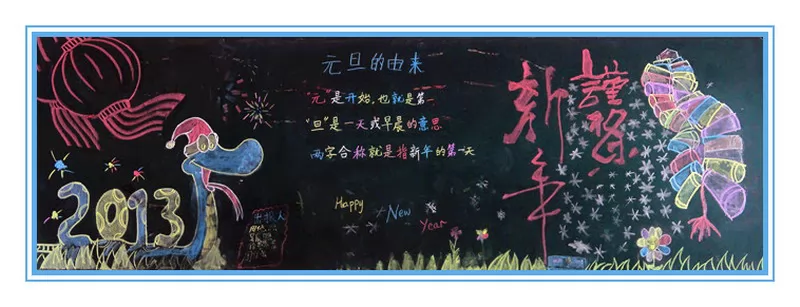 元旦的由来
"元"是开始,也就是第一
"旦"是一天或早晨的意思
两字合称就是指新年的第一天
Happy
New
Year
2013
新年
谨祭
出报人